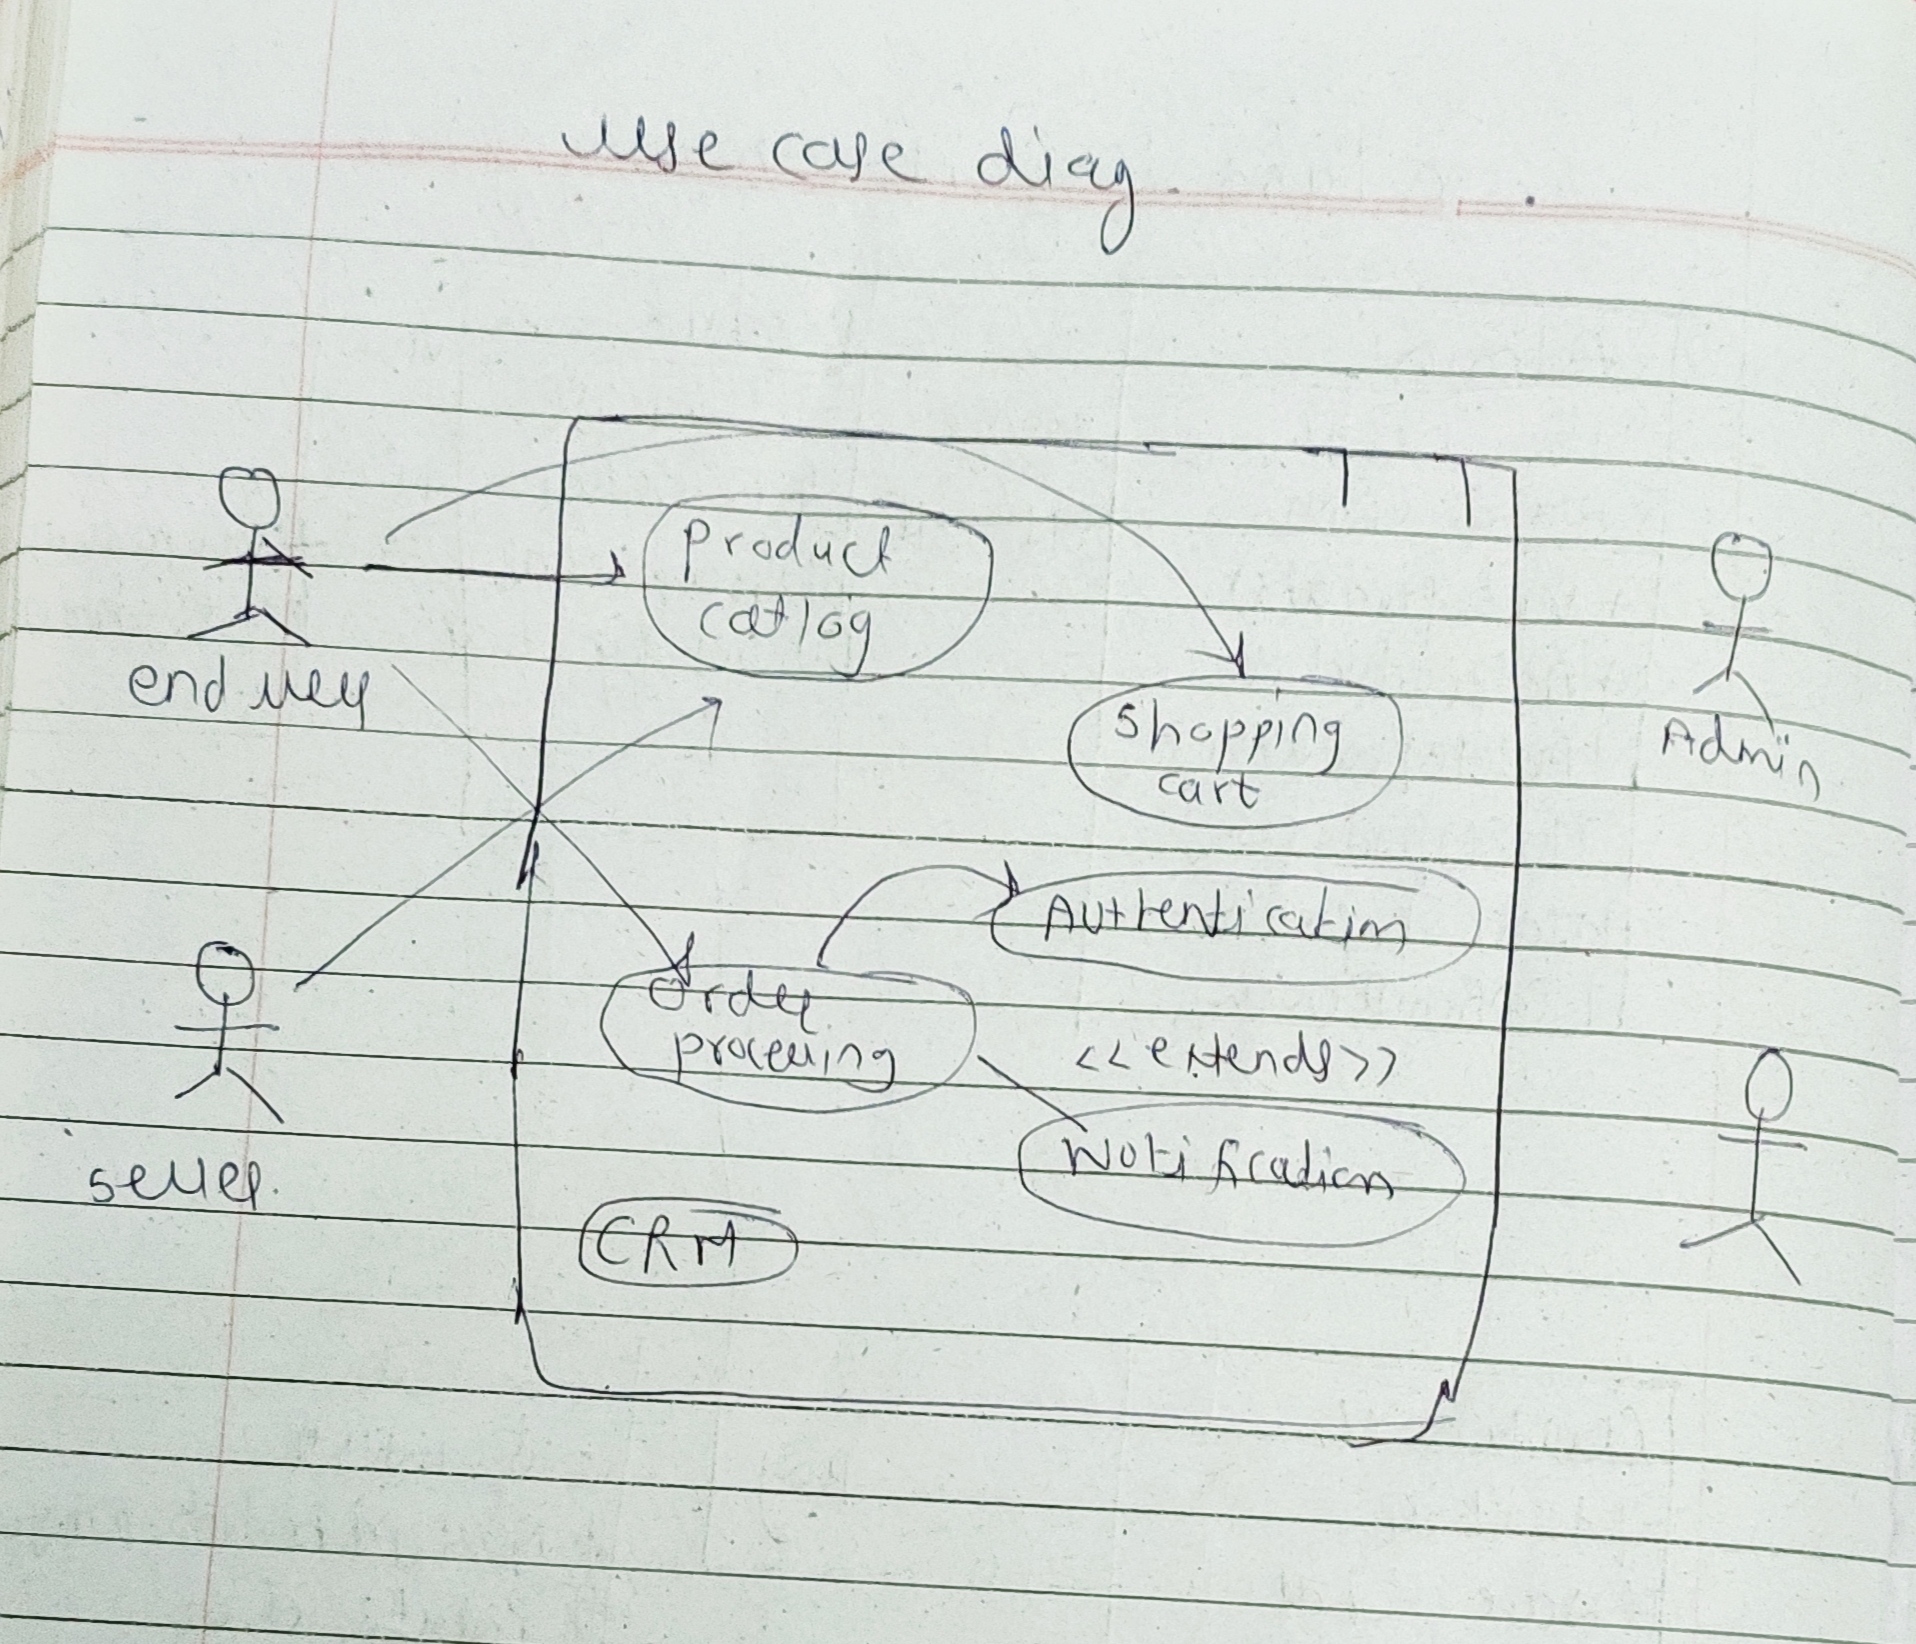 use case diag.
end user
product
catlog
shopping
cart
Admin
Authentication
order
processing
<<extends>>
Notification
seller.
CRM